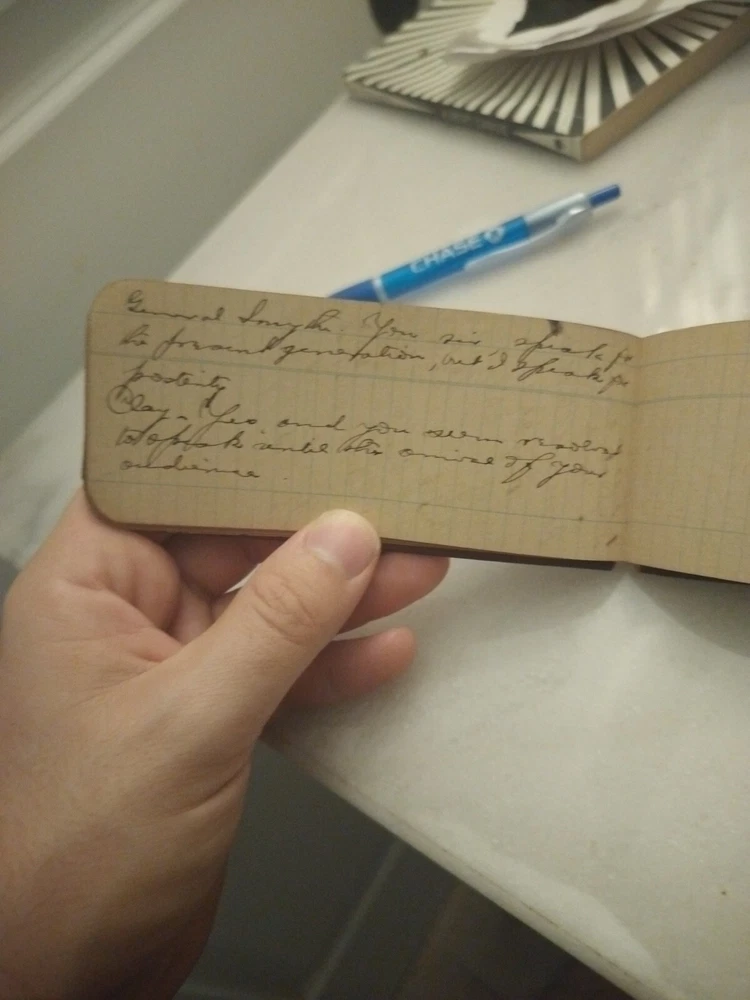 CHASE
General Smythe. You sir, speak for
the present generation, but I speak for
posterity
Clay - Yes, and you seem resolved
to speak until the arrival of your
audience.